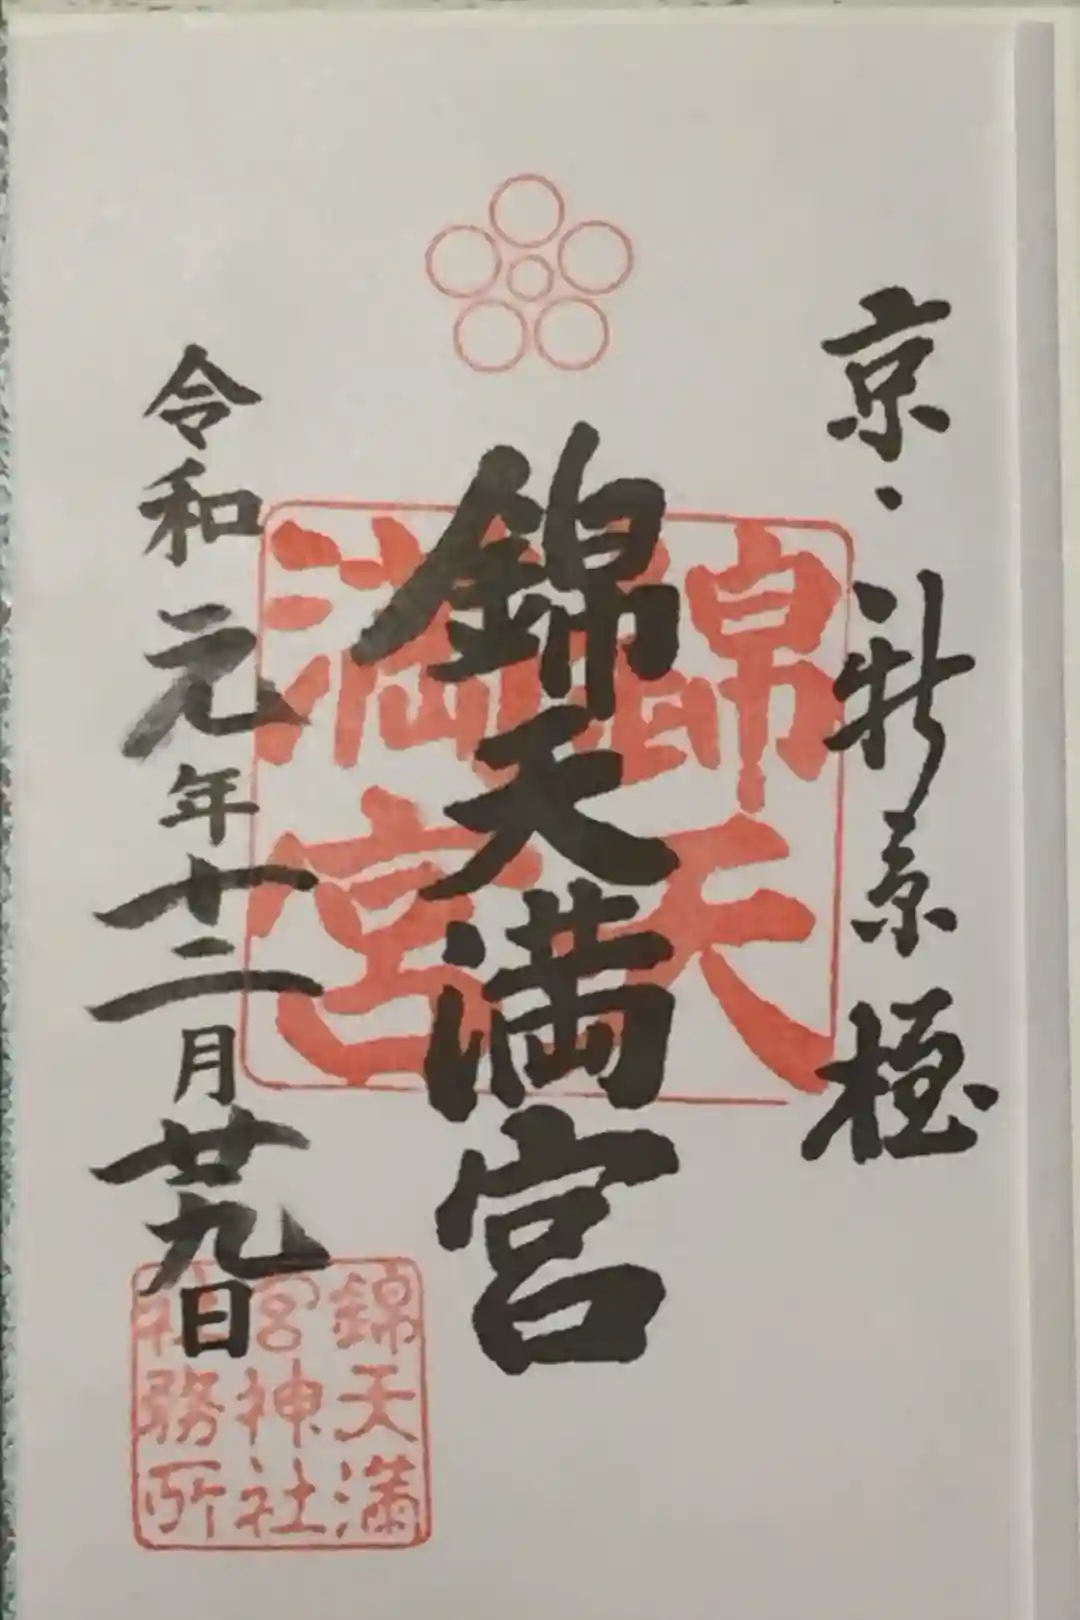 京・新京極
錦天満宮
錦天
満宮
令和元年十二月廿九日
錦天満
宮神社
社務所